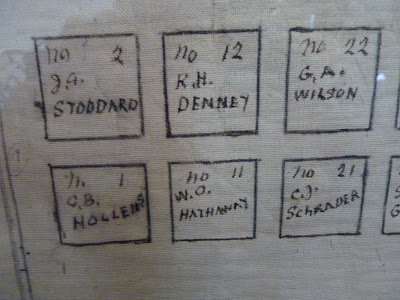 No 2
J.A.
STODDARD
No 12
R.H.
DENNEY
No 22
G.A.
WILSON
No. 1
C.B.
HOLLENS
No 11
W.O.
HATHAWAY
No 21
C.J.
SCHRADER